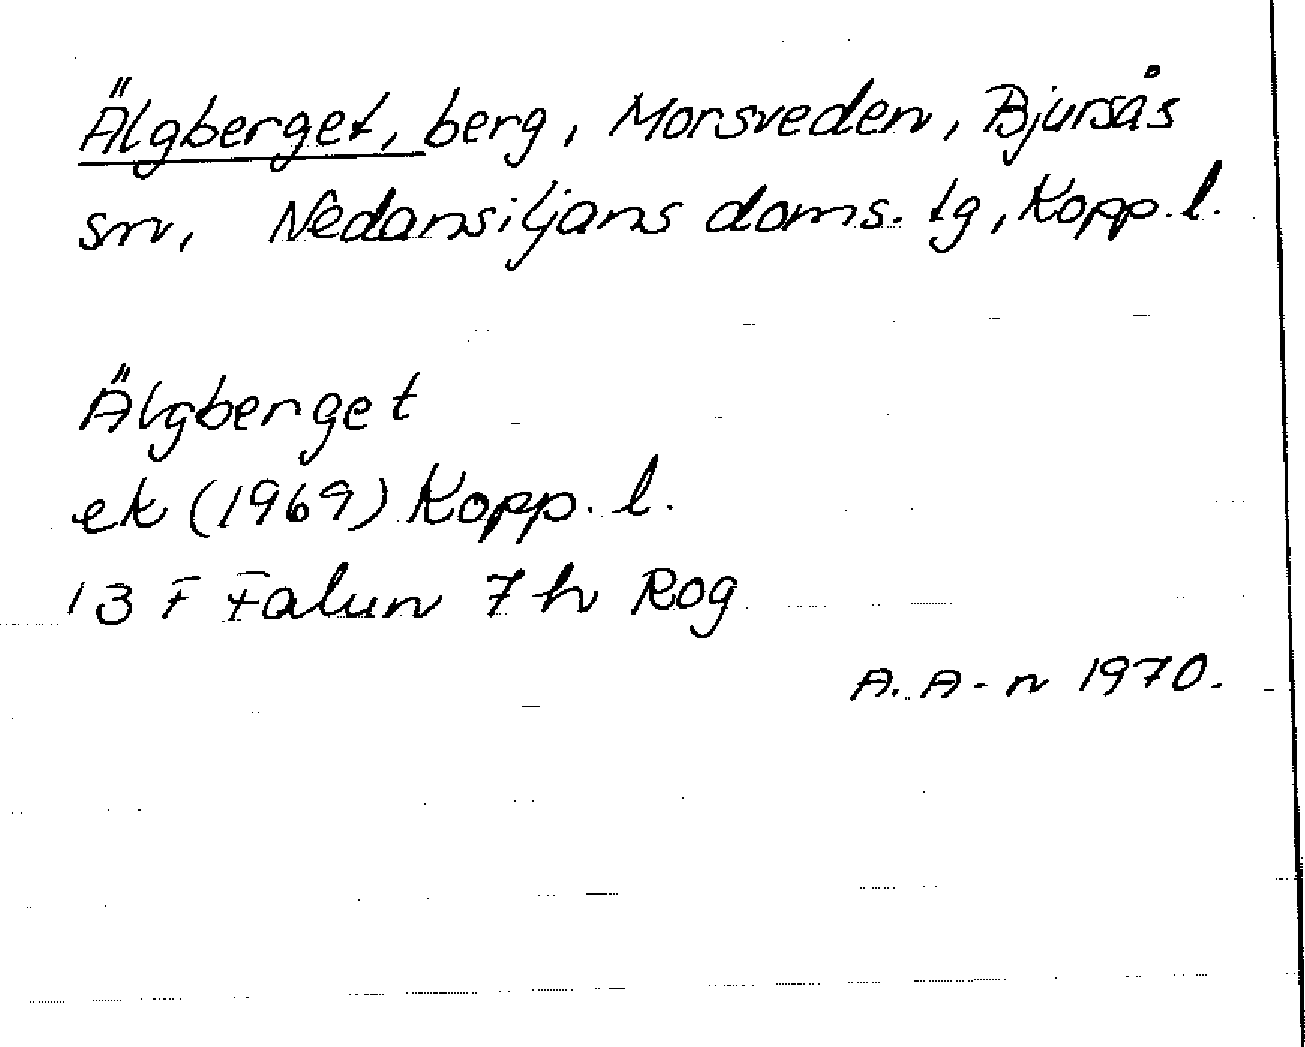 Älgberget, berg, Morsveden, Bjursås
sn, Nedansiljans doms. tg, Kopp. l.
Älgberget
ek (1969) Kopp. l.
13 F Falun 7 h Rog
A. A-n 1970.